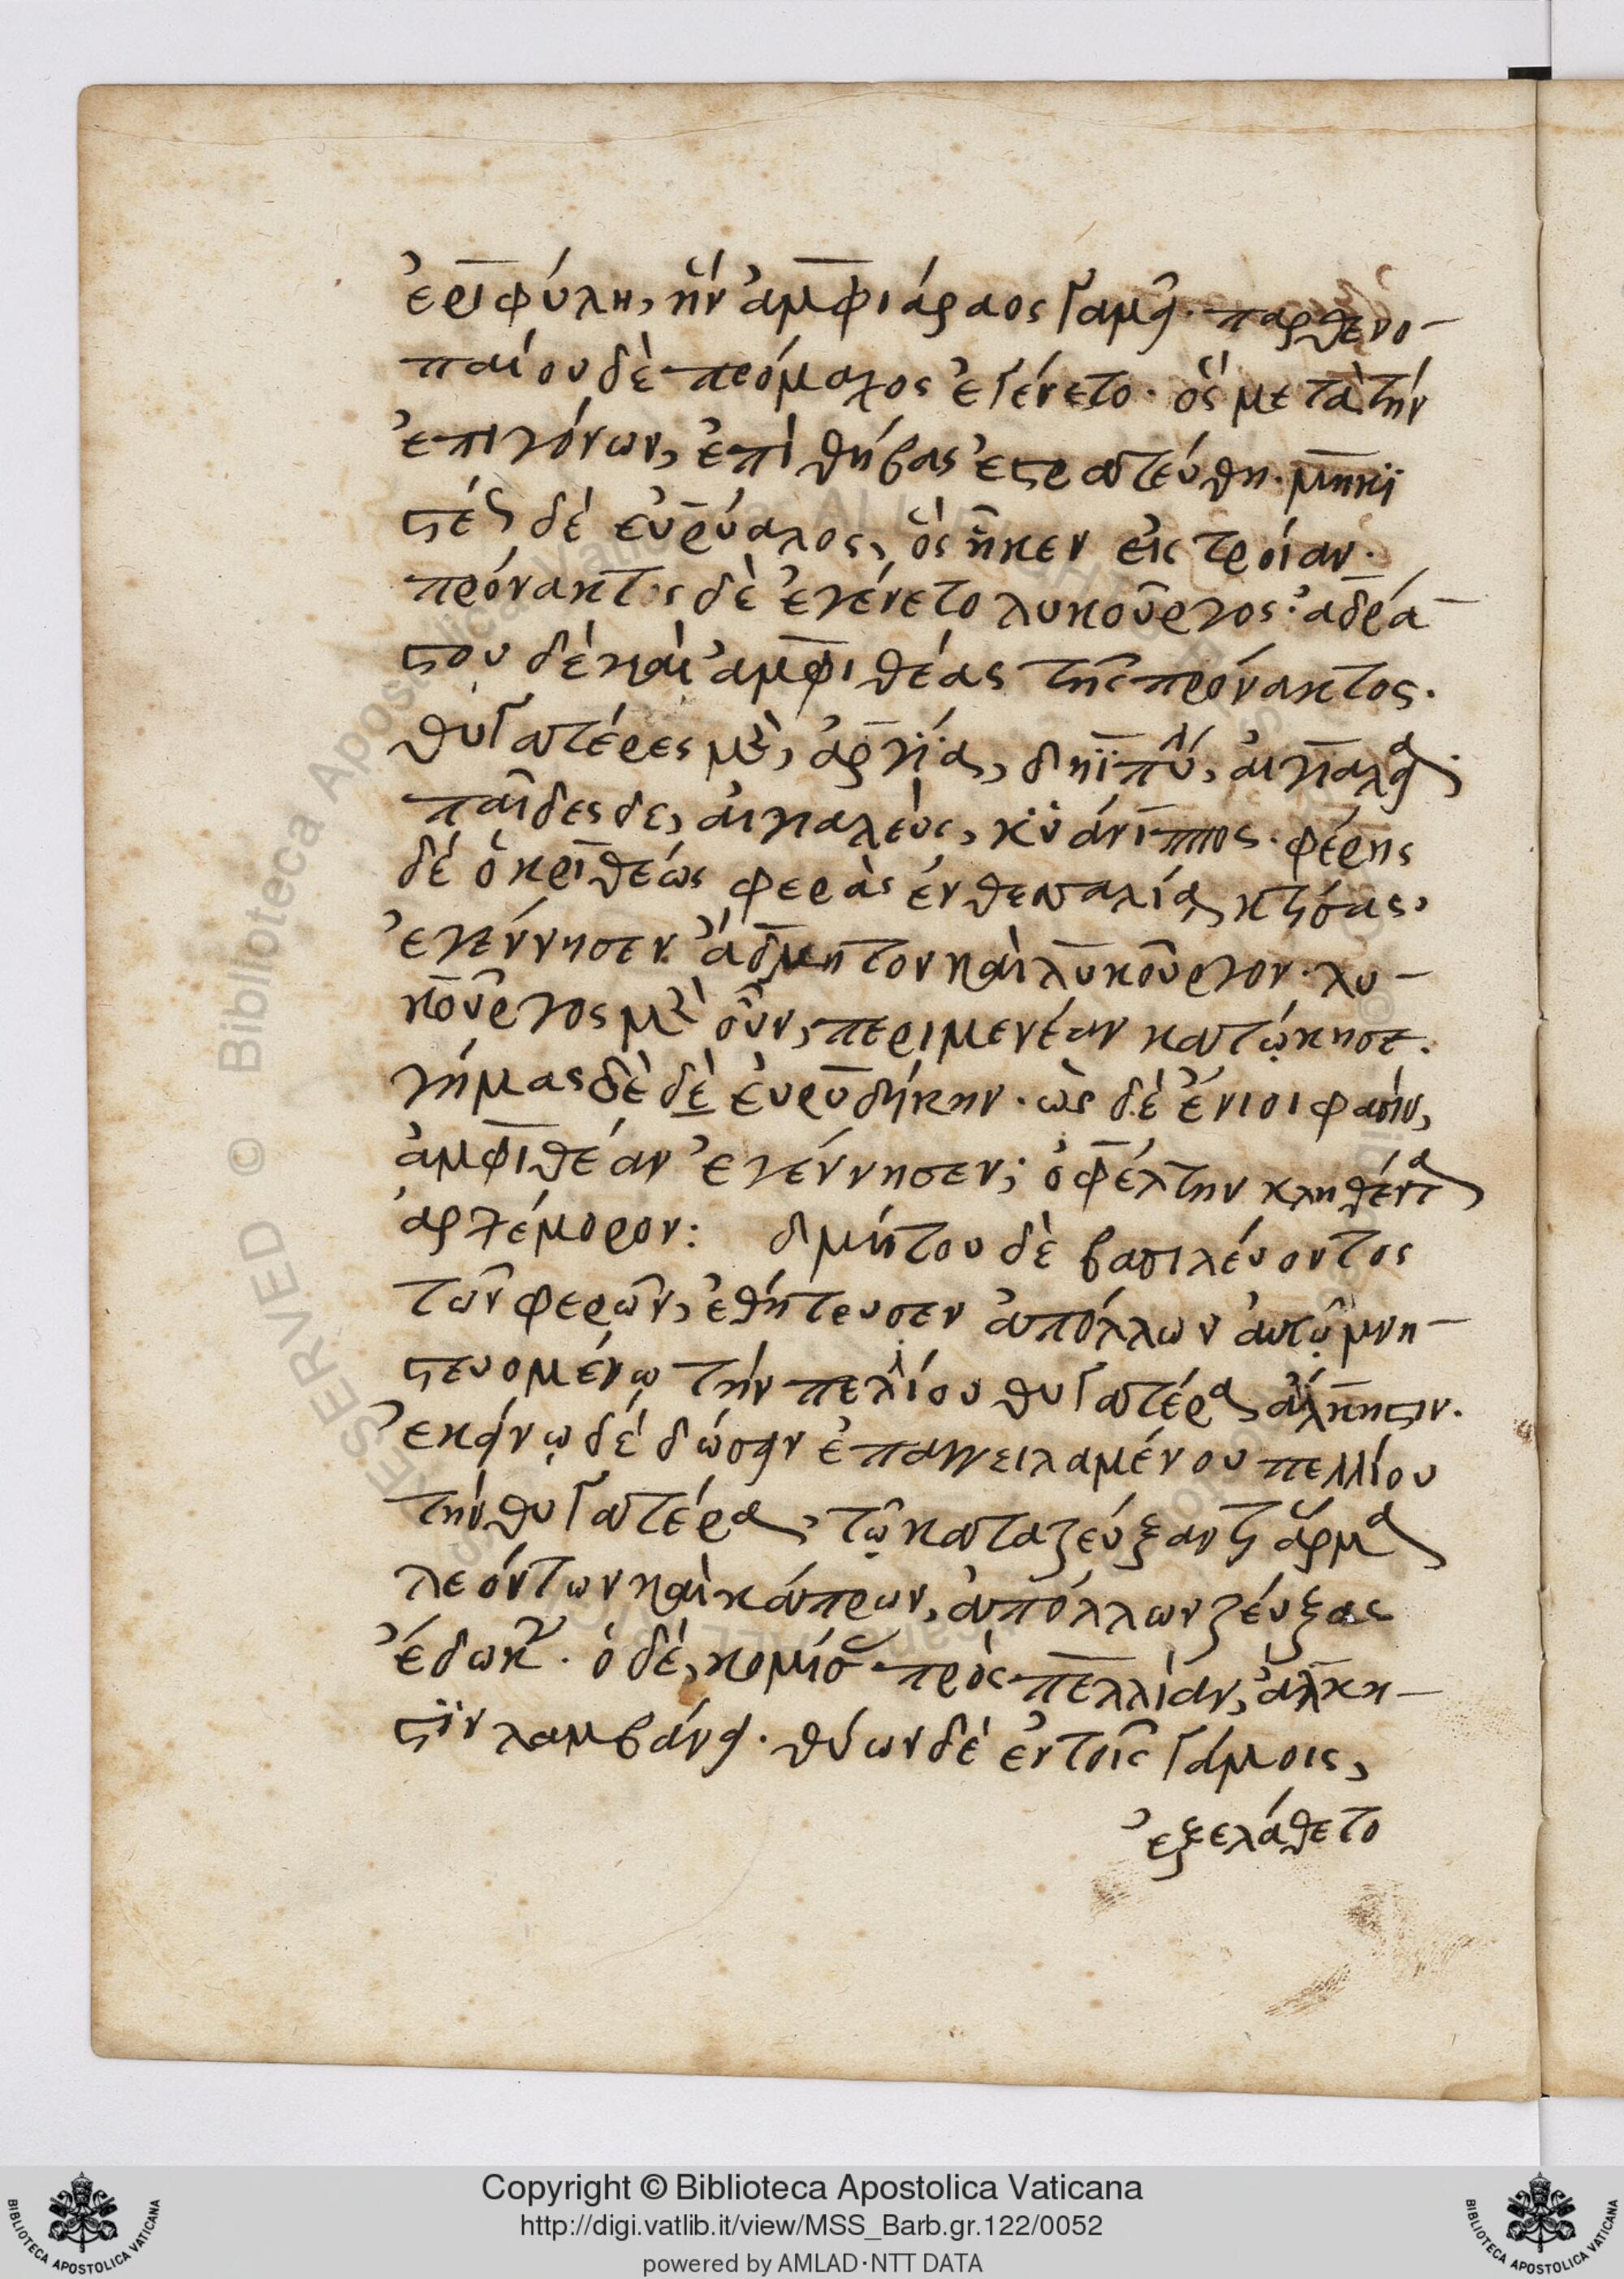 ἐριφύλη, ἣν ἀμφιάραος γαμεῖ· παρθενο-
παίου δὲ πρόμαχος ἐγένετο· ὃς μετὰ τὴν
ἐπιγόνων, ἐπὶ θήβας ἐστρατεύθη· μηκι
στέως δὲ εὐρύαλος, ὃς ἧκεν εἰς τροίαν·
πρόνακτος δὲ ἐγένετο λυκοῦργος· ἀδρά-
στου δὲ καὶ ἀμφιθέας τῆς πρόνακτος·
θυγατέρες μὲν, ἀργία, δηϊπύλη, αἰγιαλεία·
παῖδες δε, αἰγιαλεὺς, κϋάνιππος· φέρης
δέ ὁ κριθέως φερὰς ἐν θεσσαλία κτίσας·
ἐγέννησεν ἄδμητον καὶ λυκοῦργον· λυ-
κοῦργος μὲν οὖν, περιμενέαν κατώκησε·
γήμας δὲ δὲ ἐυρυδήκην· ὡς δέ ἔνιοι φασὶν,
ἀμφιθέαν ἐγέννησεν; ὀφέλτην κληθέντα
ἀρχέμορον: δμήτου δὲ βασιλέυοντος
τῶν φερῶν, ἐθήτευσεν ἀπόλλων ἀυτῷ μνη-
στευομένῳ τὴν πελίου θυγατέρα ἄλκηστιν·
ἐκείνῳ δέ δώσειν ἐπαγγειλαμένου πελλίου
τὴν θυγατέρα, τῷ καταζεύξαντι ἅρμα
λεόντων καὶ κάπρων, ἀπόλλων ζεύξας
ἔδωκεν· ὁ δὲ, κομίσας πρὸς πελλίαν, ἄλκη-
στιν λαμβάνει· θύων δὲ ἐν τοῖς γάμοις,
ἐξελάθετο
Copyright © Biblioteca Apostolica Vaticana
http://digi.vatlib.it/view/MSS_Barb.gr.122/0052
powered by AMLAD·NTT DATA